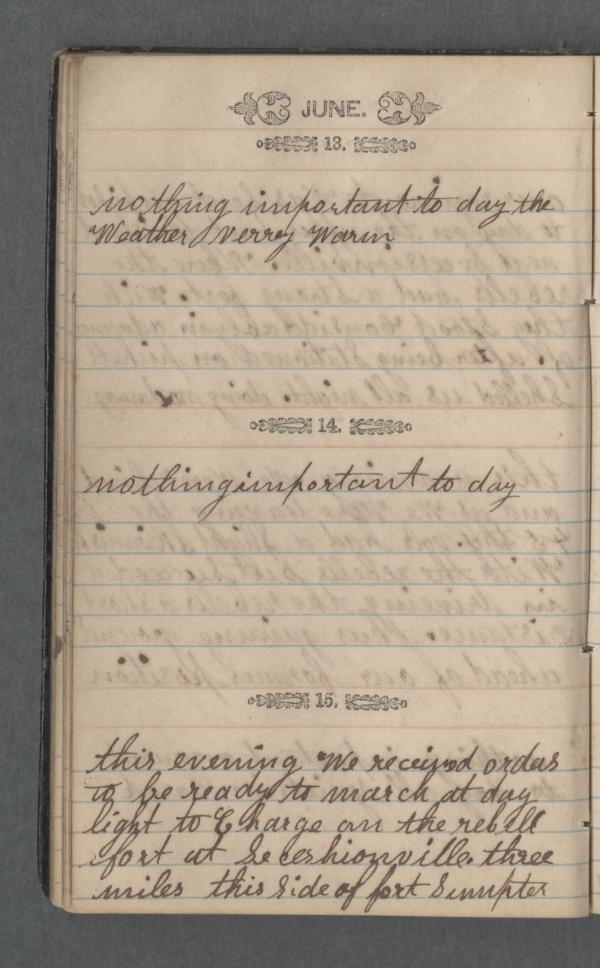 JUNE.
13.
nothing important to day the
Weather verrey Warm
14.
nothing important to day
15.
this evening We received ordas
to be ready to march at day
light to Charge on the rebell
fort at Seceshionville. three
miles this Side of fort Sumpter